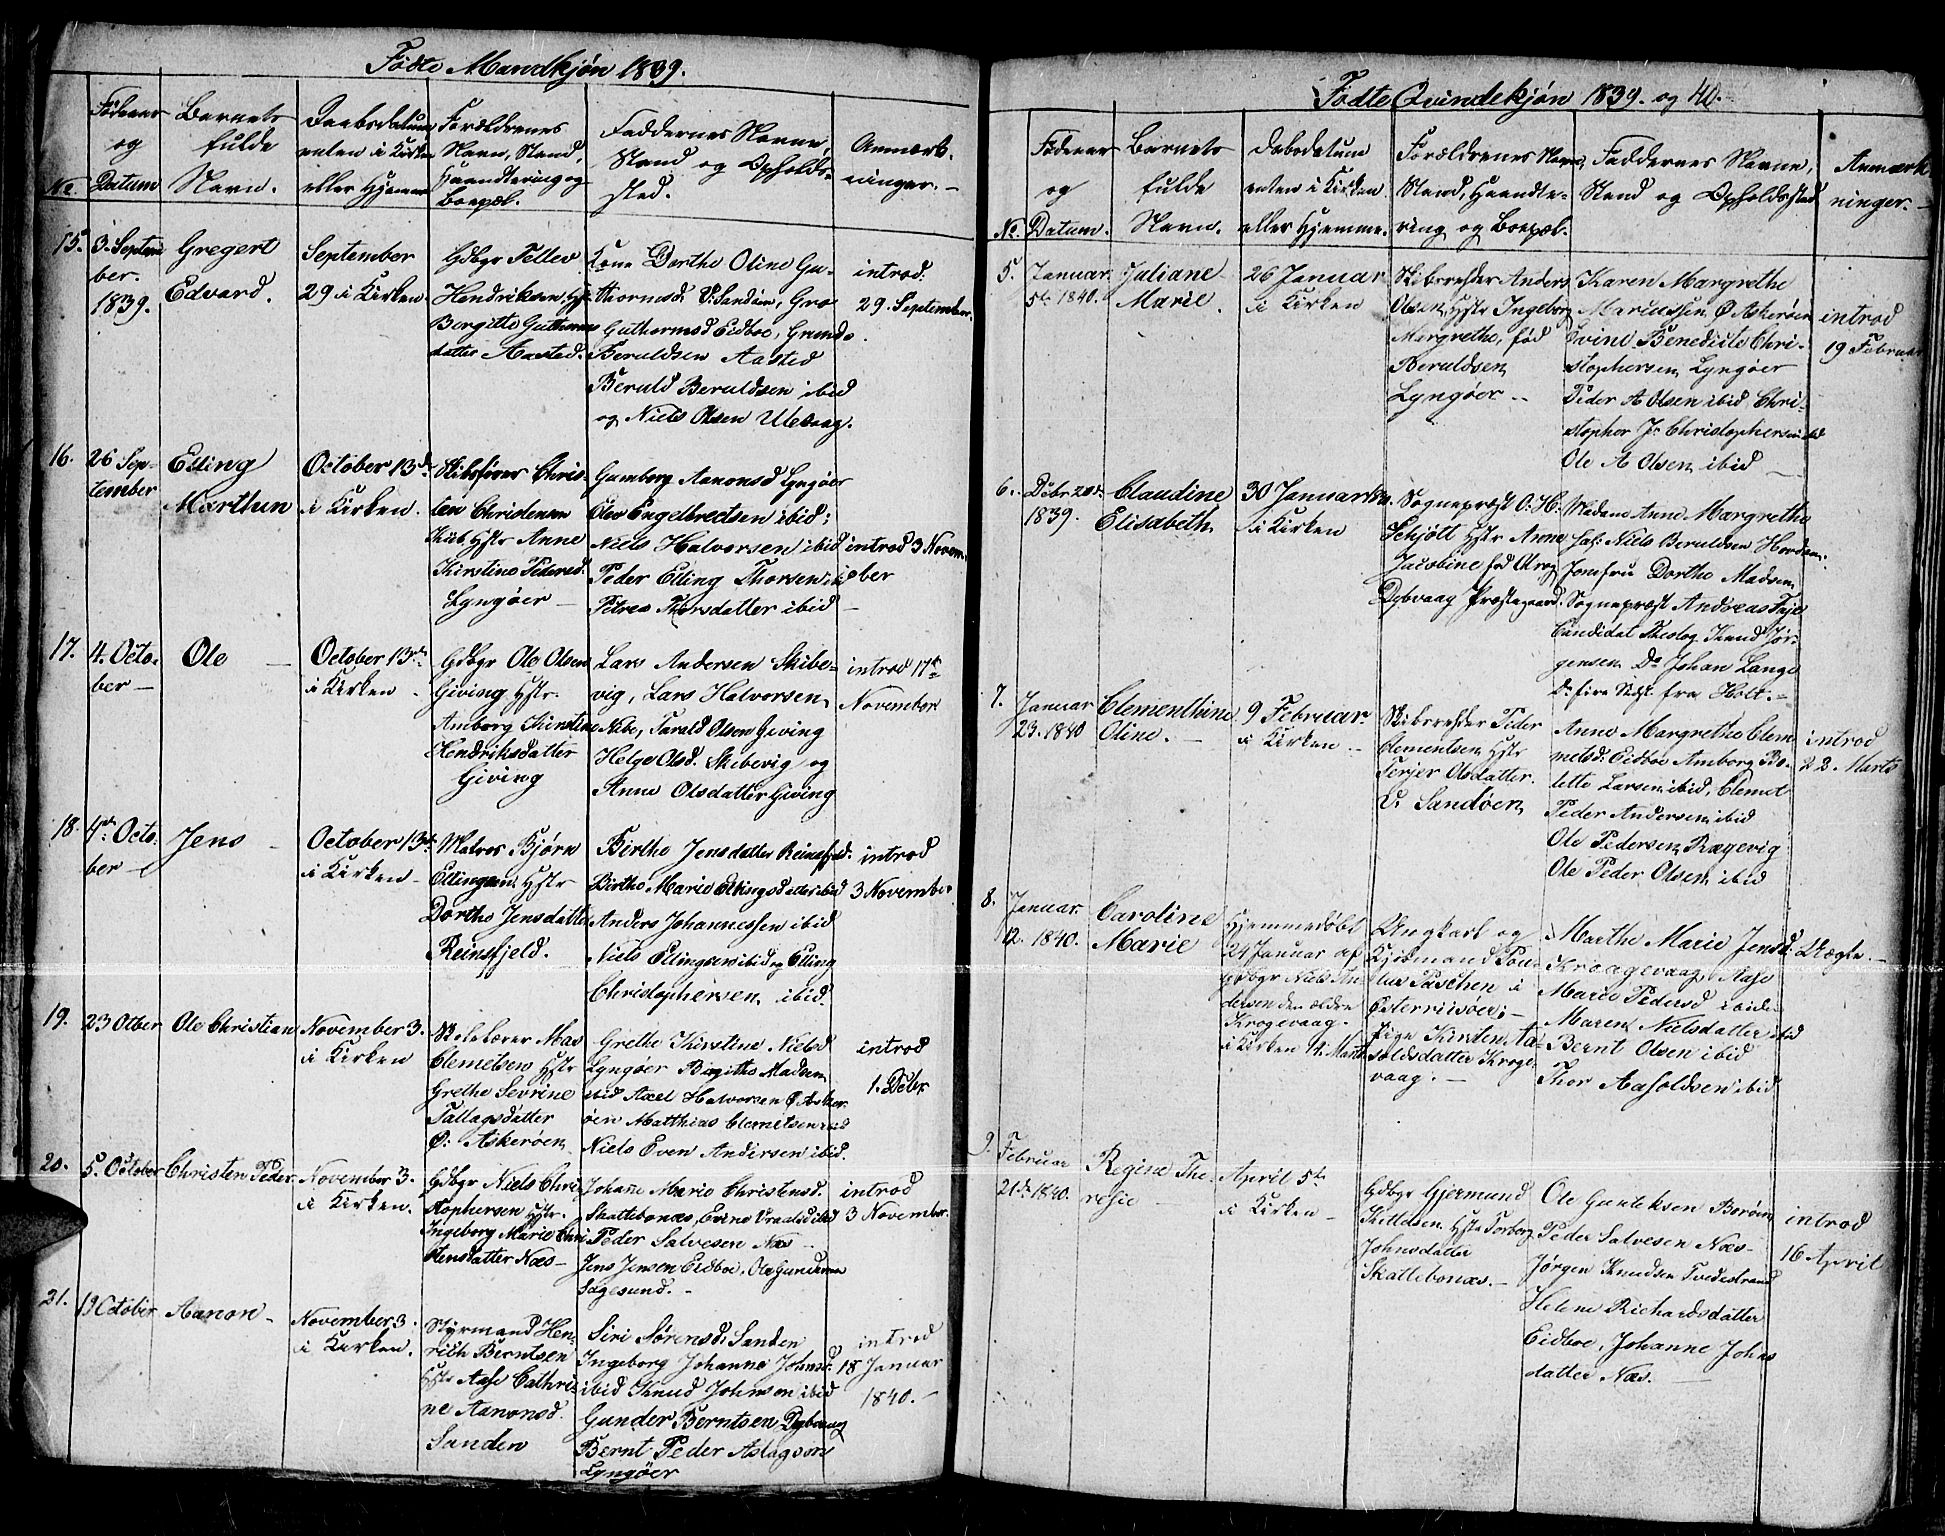 Fødte Mandkjøn 1839.
No.
Fødeaar
og
Datum
Barnets
fulde
Navn.
Daabsdatum
enten i Kirken
eller Hjemme
Forældrenes
Navn, Stand,
Haandtering og
Boepæl.
Faddernes Navne,
Stand og Opholds-
sted.
Anmærk-
ninger.
15.
3. Septem
ber.
1839.
Gregert
Edvard.
September
29 i Kirken.
Gdbgr Tellev
Hendriksen Hst
Borgitte Guthorms
datter Aasted.
Kone Dorthe Oline Gu-
thormsd. V: Sandøen, Gro
Guthormsd Eidboe, Gunds
Beruldsen Aasted
Beruld Beruldsen ibid
og Niels Olsen Ulevaag.
introd.
29. September.
16.
26 Sep-
tember
Elling
Marthun
October 13de
i Kirken.
Skibsfører Chris-
ten Christensen
Hstr Anne
Kirstine Pedersd.
Lyngøer
Gumborg Aanonsd Lyngøer
Ole Engelbredtsen ibid:
Niels Halvorsen ibid
Peder Elling Thorsen ib
Petrea Thorsdatter ibid
introd 3 Novem-
ber
17.
4. Octo-
ber
Ole
October 13de
i Kirken
Gdbgr Ole Olsen
Giving Hstr.
Amborg Kirstine
Hendriksdatter
Giving
Lars Andersen Skibe-
vig, Lars Halvorsen
Nibe, Tarald Olsen Giving
Helge Olsd. Skibevig og
Anne Olsdatter Giving
introd 17de
November
18.
4de Octo-
ber
Jens
October 13de
i Kirken
Matros Bjørn
Ellingsen Hstr
Dorthe Jensdatter
Reinsfjeld.
Birthe Jensdatter Reinsfjeld.
Birthe Marie Ellingsdatter ibid
Anders Johannessen ibid
Niels Ellingsen ibid og Elling
Christophersen ibid.
introd
3 November
19.
23 Otber
Ole Christian
November 3.
i Kirken
Skolelærer Mas
Clemetsen Hstr
Grethe Sevrine
Tallagsdatter
Ø: Askerøen
Grethe Kirstine Nielsd
Lyngøer Birgitha Madsen
ibid Axel Halvorsen Ø Asker-
øen Matthias Clemetsen ibid
Niels Even Andersen ibid.
introd
1. Debr
20.
5. October
Christen Peder
November 3.
i Kirken.
Gdbgr Niels Chri-
stophersen Hstr.
Ingeborg Marie Chri
stensdatter Næs
Johane Marie Christensd.
Skattebonæs, Evine Vraalsd ibid
Peder Salvesen Næs
Jens Jensen Eidboe, Ole Gundersen
Sagesund.
introd
3 November.
21.
19 October
Aanon
November 3.
i Kirken.
Styrmand Hen-
rich Berntsen
Hstr Aase Cathri-
ne Aanonsd.
Sanden
Siri Sørensd. Sanden
Ingeborg Johanne Johnsd.
ibid Knud Johnsen ibid
Gunder Berntsen Dybvaag
Bernt Peder Aslagsøn
Lyngøer
introd
18 Januar
1840.
Fødte Qvindekjøn 1839. og 40.
No.
Fødeaar
og
Datum.
Barnets
fulde
Navn.
Daabsdatum
enten i Kirken
eller Hjemme.
Forældrenes Navn,
Stand, Haandte-
ring og Boepæl.
Faddernes Navne,
Stand og Opholdssted
Anmærk-
ninger.
5.
Januar
5te 1840.
Juliane
Marie.
26 Januar
i Kirken
Skibsrheder Anders
Olsen, Hstr Ingeborg
Margrethe, fød
Beruldsen
Lyngøer
Karen Margrethe
Mariussen Ø: Askerøen
Evine Benedicte Chri-
stophersen Lyngøer
Peder A Olsen ibid Chri-
stopher Jr Christophersen ibid
Ole A Olsen ibid
introd
19 Februar
6.
Debr 20de
1839.
Claudine
Elisabeth
30 Januar
i Kirken
Sognepræst O: H:
Schjøtt Hstr Anne
Jacobine fød Krog
Dybvaag Præstegaard.
Madame Anne Margrethe
Niels Beruldsen
Jomfru Dorthe Madsen
Sognepræst Andreas Faye
Candidat Theolog Knud Jør-
gensen Do Johan Lange
fra Holt.
7.
Januar
23. 1840
Clementhine
Oline.
9 Februar
i Kirken
Skibsrheder Peder
Clementsen Hstr
Terjer Olsdatter
V: Sandøen
Anne Margrethe Clem
metsd. Eidboe Amborg Bo-
lette Larsen ibid, Clemet
Peder Andersen ibid
Ole Pedersen Rægevig
Ole Peder Olsen ibid
introd
22. Marts
8.
Januar
12. 1840.
Caroline
Marie
Hjemmedøbt
24 Januar af
Gdbgr Niels An-
dersen den ældre
Krogevaag.
i Kirken Marts
Ungkarl og
Kjøbmand Pou-
lus Paschen i
Østerriisøer,
Pige Kirsten Aa-
soldsdatter Kroge-
vaag.
Marthe Marie Jensd.
Kroagevaag, Aase
Marie Pedersd ibid
Maren Nielsdatter ibid
Bernt Olsen ibid
Thor Aasoldsen ibid
Uægte.
9.
Februar
21de 1840.
Regine The-
resie
April 5te
i Kirken
Gdbgr Gjermund
Kittelsen Hstr Torborg
Johnsdatter
Skattebonæs.
Ole Gunteksen Borøen
Peder Salvesen Næs
Jørgen Knudsen Tvedestrand
Helene Richardsdatter
Eidboe, Johanne Johns
datter Næs.
introd
16 April